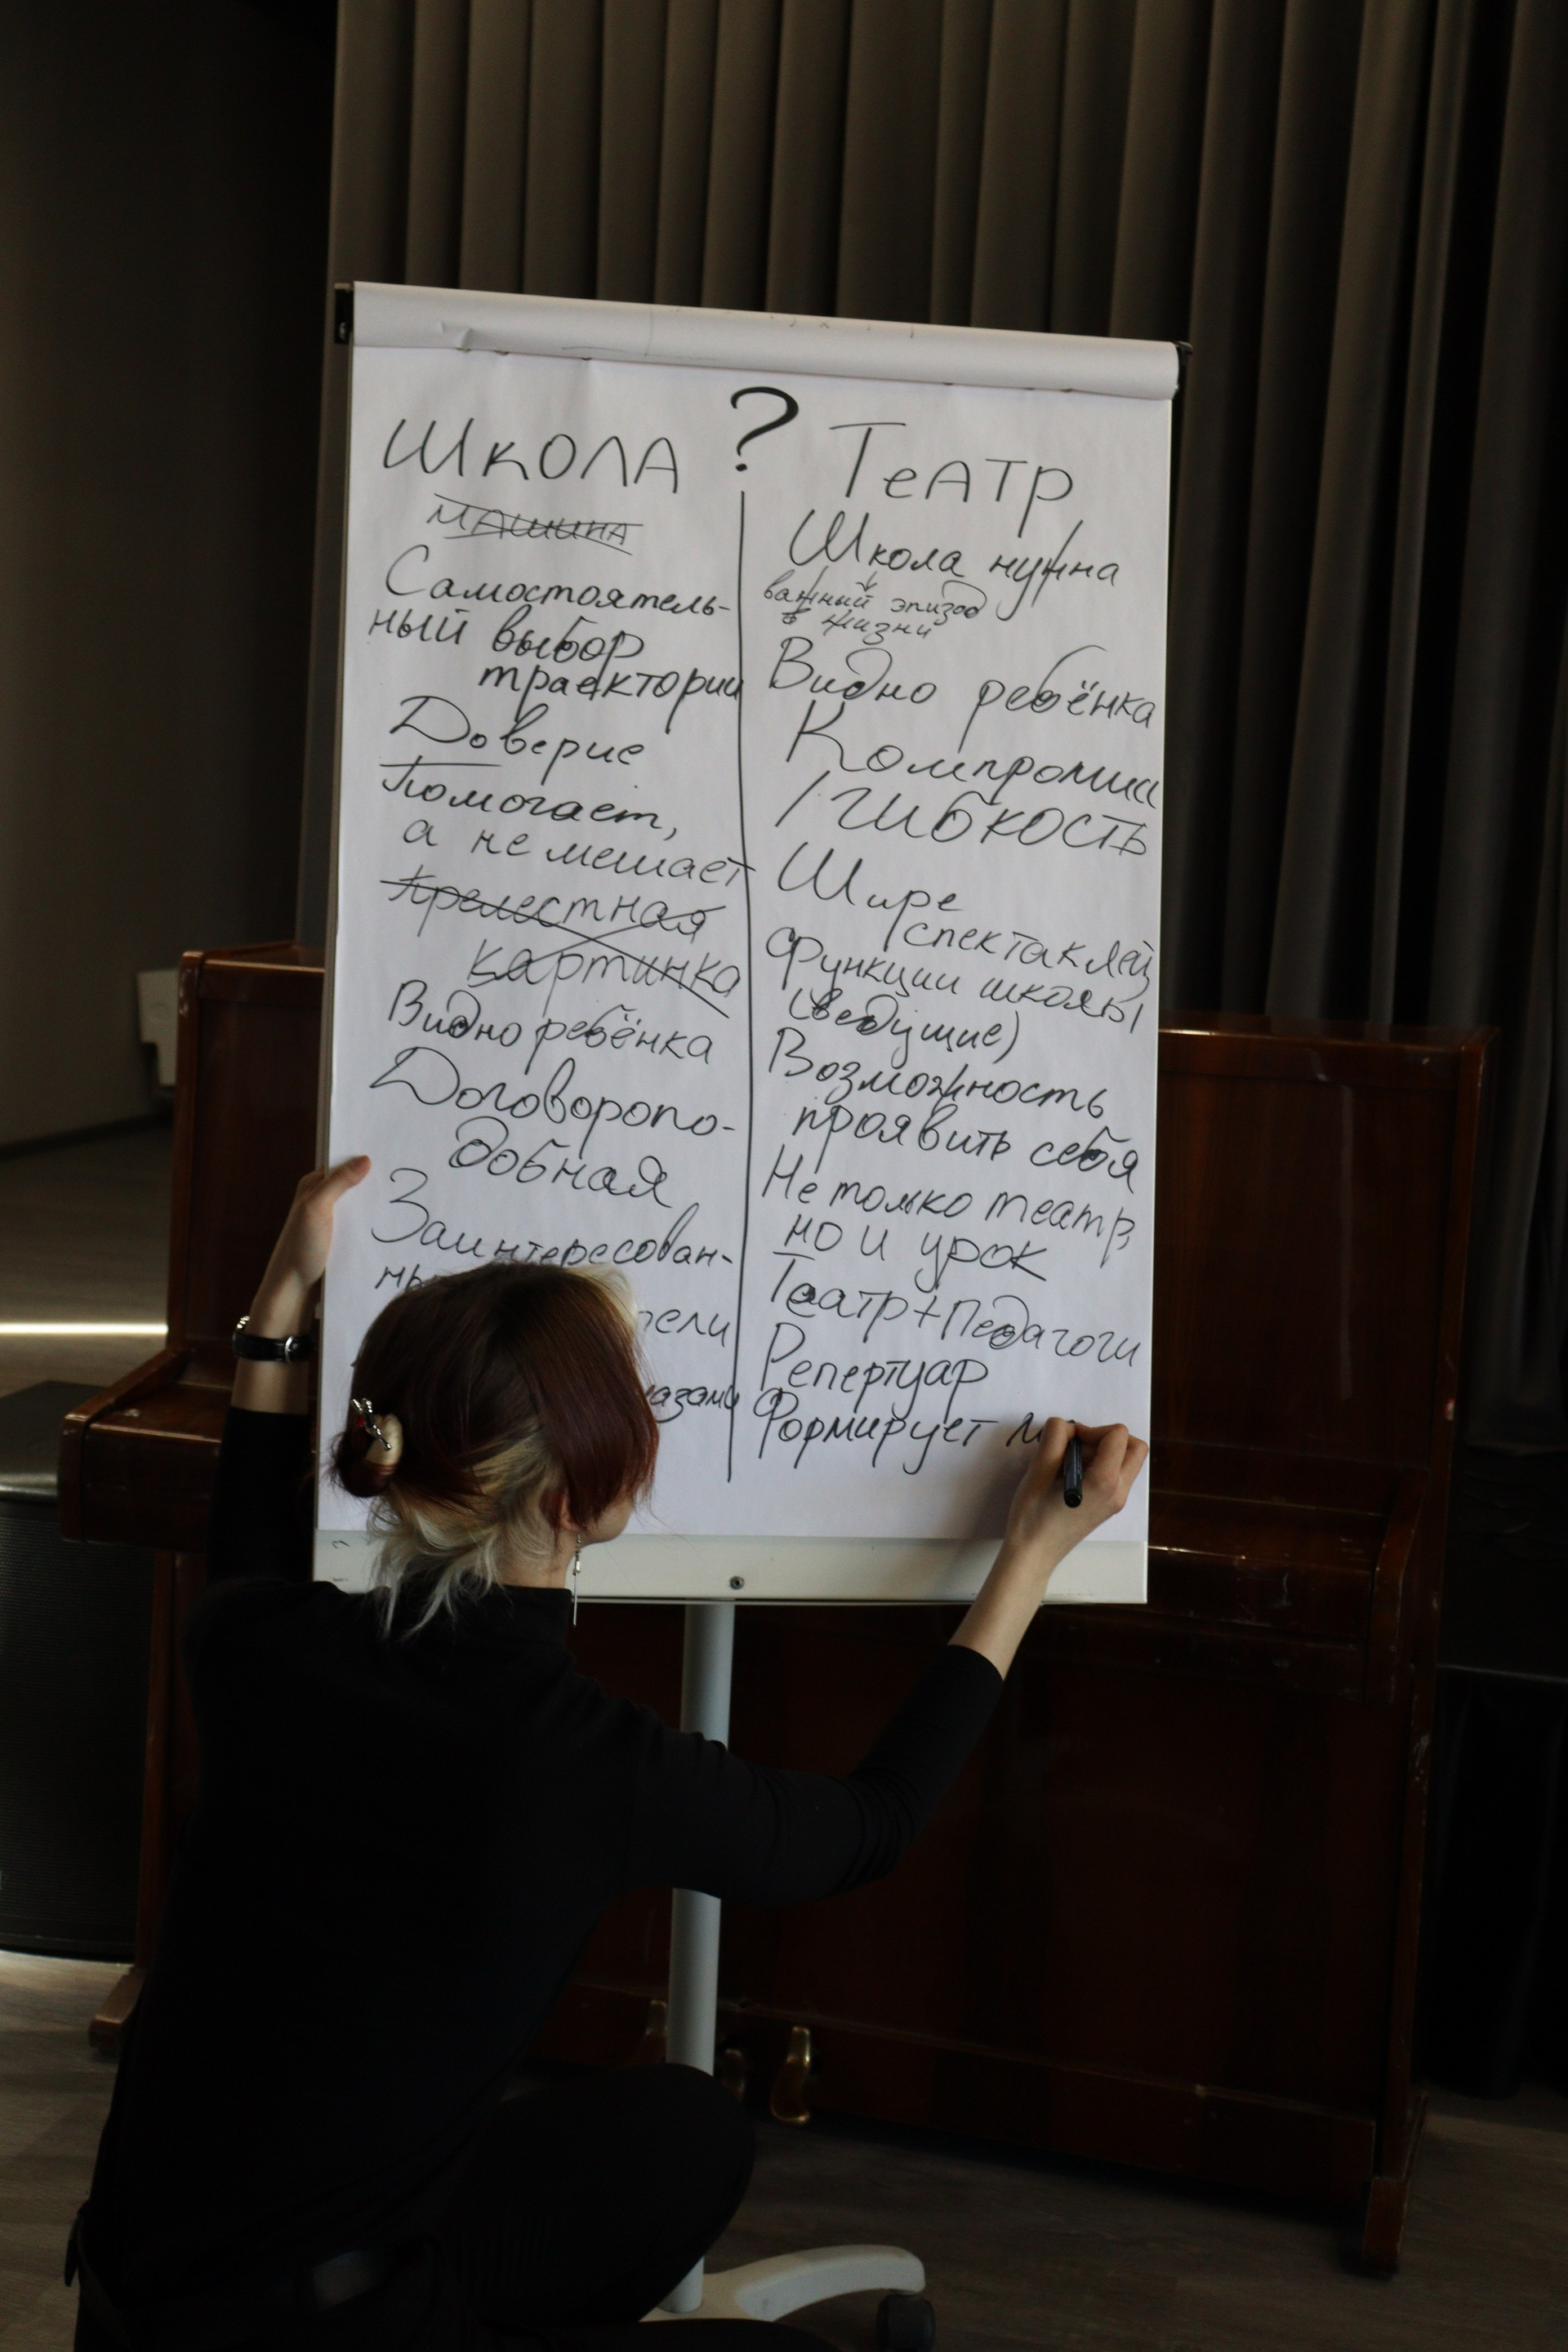 ?
ШКОЛА
МАШИНА
Самостоятель-
ный выбор
траектории
Доверие
Помогает,
а не мешает
Прелестная
картинка
Видно ребёнка
Договоропо-
добная
Заинтересован-
тели
ТеАТР
Школа нужна
важный эпизод
в жизни
Видно ребёнка
Компромисс
/ГИБКОСТЬ
Шире
спектаклей
Функции школы
(ведущие)
Возможность
проявить себя
Не только театр,
но и урок
Театр+Педагоги
Репертуар
Формирует